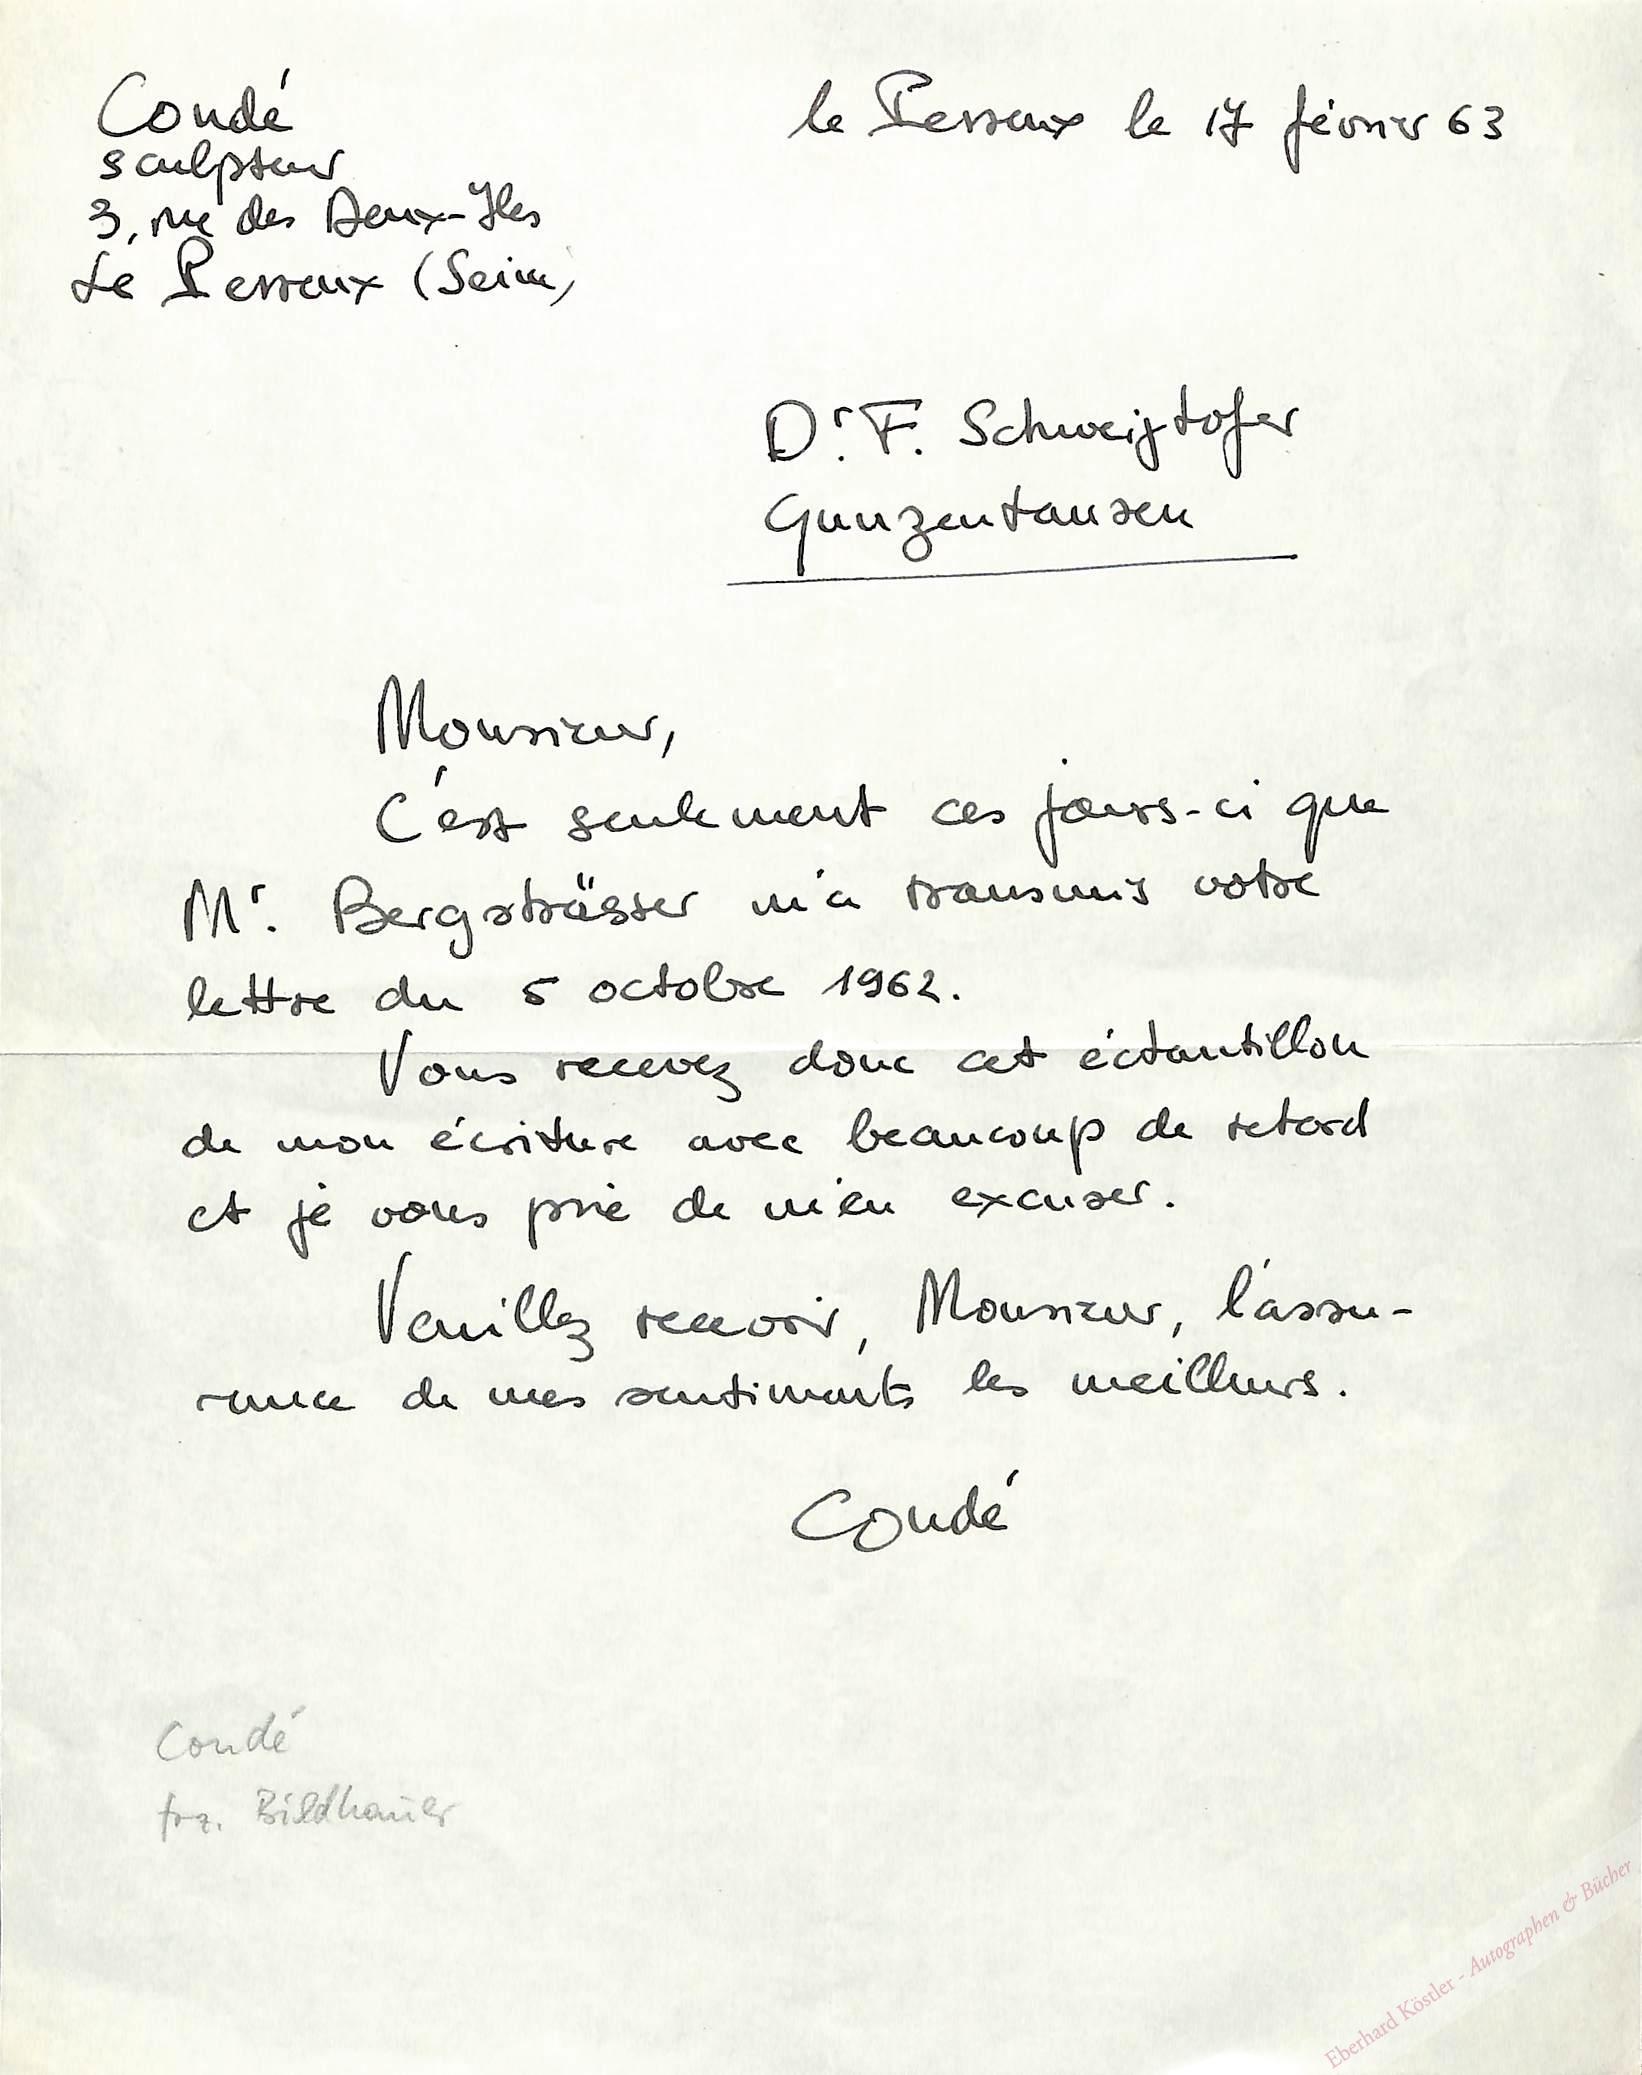 Condé
sculpteur
3, rue des Deux-Iles
Le Perreux (Seine)
le Perreux le 17 février 63
Dr. F. Schweighofer
Gunzenhausen
Monsieur,
C'est seulement ces jours-ci que
Mr. Bergsträsser m'a transmis votre
lettre du 5 octobre 1962.
Vous recevez donc cet échantillon
de mon écriture avec beaucoup de retard
et je vous prie de m'en excuser.
Veuillez recevoir, Monsieur, l'assu-
rance de mes sentiments les meilleurs.
Condé
Condé
frz. Bildhauer
Eberhard Köstler - Autographen & Bücher